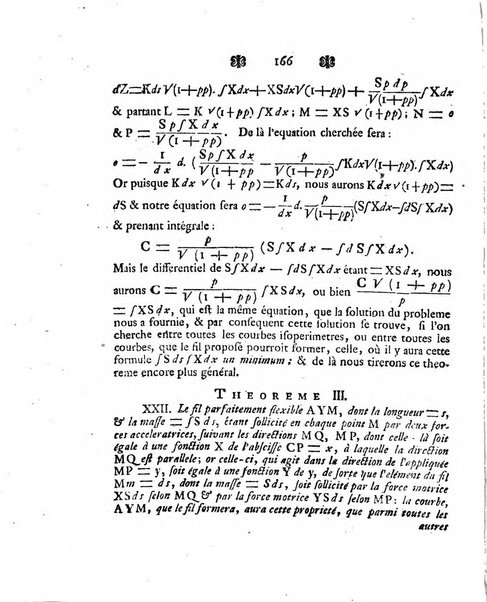 166
dZ=Kds√(1+pp).∫Xdx+XSdx√(1+pp)+Spdp/√(1+pp)∫Xdx
& partant L = K √(1+pp)∫Xdx; M = XS √(1+pp); N = 0
& P = Sp∫Xdx/√(1+pp). De là l'equation cherchée sera:
0=− 1/dx d. (Sp∫Xdx/√(1+pp) − p/√(1+pp)∫Kdx√(1+pp)∫Xdx)
Or puisque Kdx √(1 + pp)=Kds, nous aurons Kdx√(1+pp)=
dS & notre équation sera 0=− 1/dx d. p/√(1+pp)(S∫Xdx−∫dS∫Xdx)
& prenant intégrale:
C = p/√(1 + pp) (S∫X dx − ∫d S∫X dx).
Mais le differentiel de S∫Xdx − ∫dS∫Xdx étant = XSdx, nous
aurons C = p/√(1 + pp) ∫XSdx, ou bien C√(1 + pp)/p
= ∫XSdx, qui est la même équation, que la solution du probleme
nous a fournie, & par consequent cette solution se trouve, si l'on
cherche entre toutes les courbes isoperimetres, ou entre toutes les
courbes, que le fil proposé pourroit former, celle, où il y aura cette
formule ∫S ds∫X dx un minimum; & de là nous tirerons ce theo-
reme encore plus général.
THEOREME III.
XXII. Le fil parfaitement flexible AYM, dont la longueur = s,
& la masse = ∫S ds, étant sollicité en chaque point M par deux for-
ces acceleratrices, suivant les directions MQ, MP, dont celle - là soit
égale à une fonction X de l'abscisse CP = x, à laquelle la direction
MQ est parallele; or celle-ci, qui agit dans le direction de l'appliquée
MP = y, soit égale à une fonction Y de y, de sorte que l'élement du fil
Mm = ds, dont la masse = Sds, soit sollicité par la force motrice
XSds selon MQ & par la force motrice YSds selon MP: la courbe,
AYM, que le fil formera, aura cette proprieté, que parmi toutes les
autres